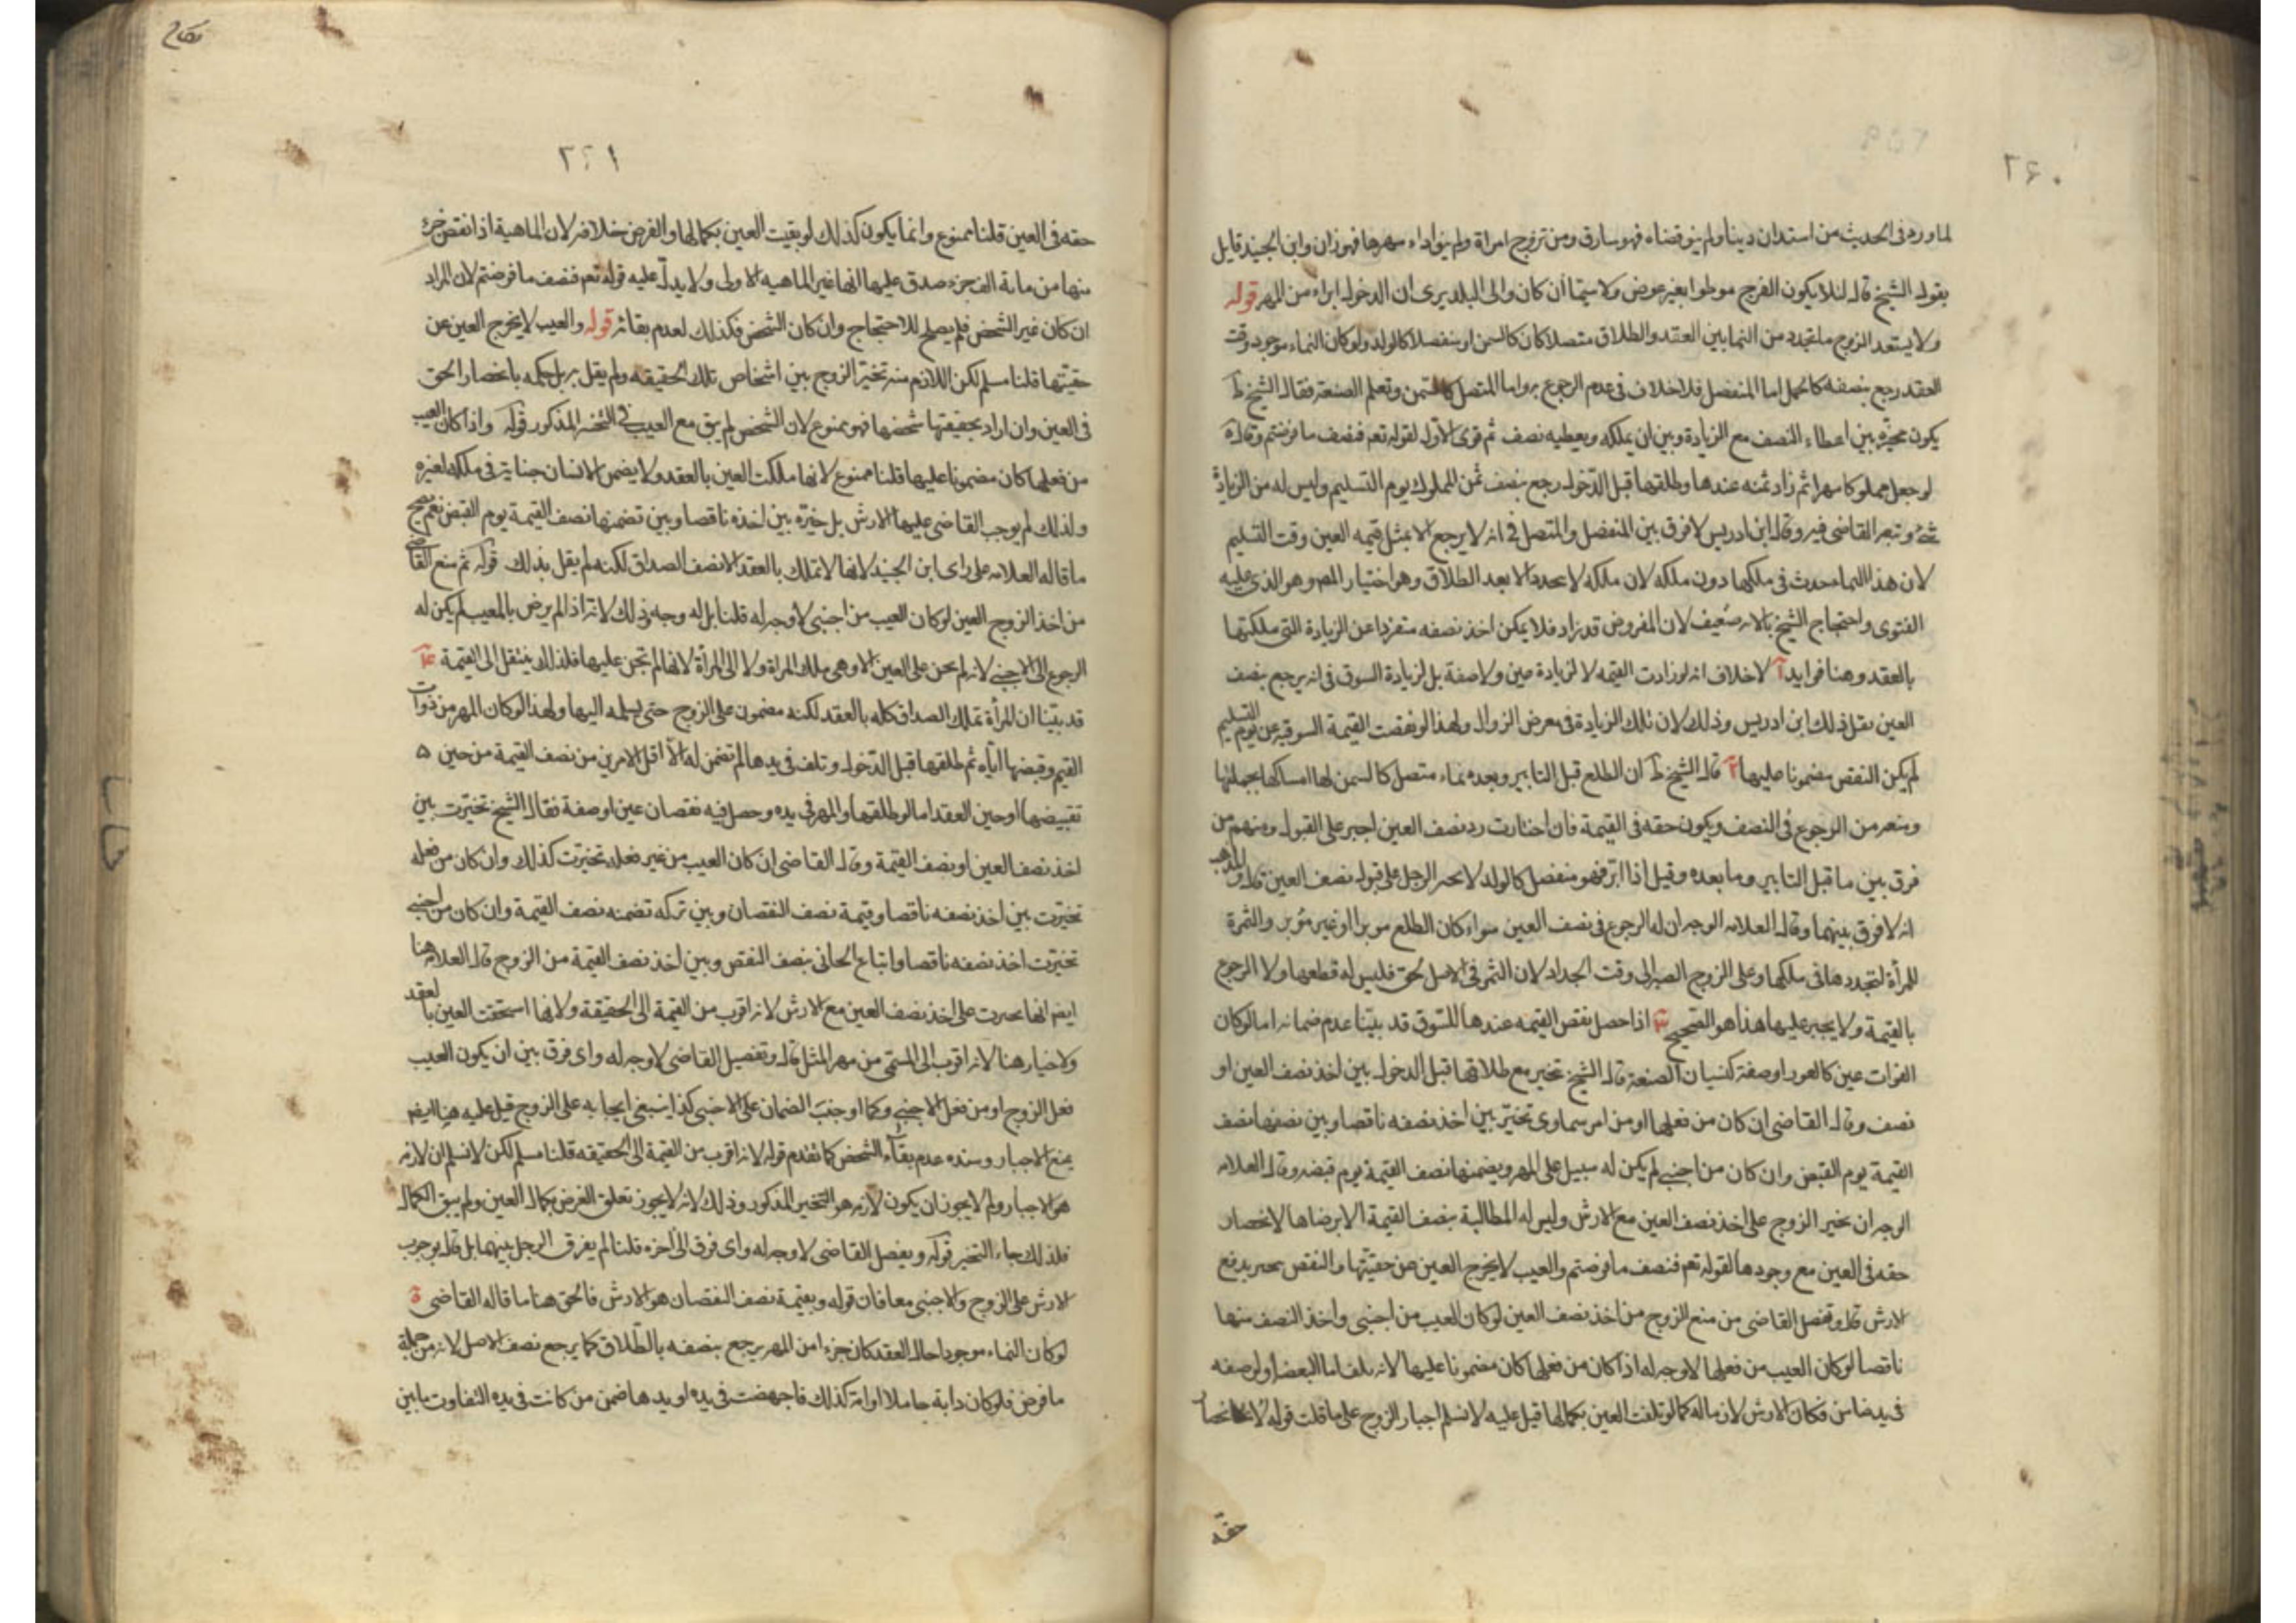 ٢٦٠
لما ورد فى الحديث من استدان دينا ولم ينو قضاه فهو سارق ومن تزوج امراة ولم ينو اداء مهرها فهو زان وابن الجنيد قايل
بقوله الشيخ قال لئلا يكون الفرج موطوا بغير عوض ولا سيما ان كان والى البلد يرى ان الدخول ابراء من المهر قوله
ولا يستعد الزوج ما تجدد من النما بين العقد والطلاق متصلا كان كالسمن او منفصلا كالولد ولو كان النماء موجود وقت
العقد رجع بنصفه كالحمل اما المنفصل فلا خلاف فى عدم الرجوع به واما المتصل كالسمن وتعلم الصنعة فقال الشيخ ط
يكون مخيره بين اعطاء النصف مع الزيادة وبين ان يملكه ويعطيه نصف ثم قوى الاول لقوله تعم فنصف ما فرضتم وقال ية
لو جعل مملوكا مهرا ثم زاد ثمنه عندها وطلقها قبل الدخول رجع بنصف ثمن المملوك يوم التسليم وليس له من الزيادة
شئ وتبعه القاضى فيه وقال ابن ادريس لا فرق بين المنفصل والمتصل فى انه لا يرجع الا بمثل قيمه العين وقت التسليم
لان هذا النما حدث فى ملكها دون ملكه لان ملكه لا تجدد الا بعد الطلاق وهو اختيار المص وهو الذى عليه
الفتوى واحتجاج الشيخ بالاية ضعيف لان المفروض قد زاد فلا يمكن اخذ نصفه متفردا عن الزيادة التى ملكتها
بالعقد وهنا فوايد آ لا خلاف انه لو زادت القيمه لا لزيادة عين ولا صفة بل لزيادة السوق فى انه يرجع بنصف
العين نقل ذلك ابن ادريس وذلك لان تلك الزيادة فى معرض الزوال ولهذا لو نقصت القيمة السوقيه عن يوم التسليم
لم يكن النقص مضمونا عليها ٢ قال الشيخ ط ان الطلع قبل التابير وبعده نماء متصل كالسمن لها امساكها بجملتها
ومنعه من الرجوع فى النصف ويكون حقه فى القيمة فان اختارت رد نصف العين اجبر على القبول ومنهم من
فرق بين ما قبل التابير وما بعده وقيل اذا ابر فهو منفصل كالولد لا يجبر الرجل على قبول نصف العين قال والمذهب
انه لا فرق بينهما وقال العلامه الوجه ان له الرجوع فى نصف العين سواء كان الطلع موبرا او غير مؤبر والثمرة
للمرأة لتجددها فى ملكها وعلى الزوج الصبر الى وقت الجداد لان الثمر فى الاصل بحق فليس له قطعها ولا الرجوع
بالقيمة ولا يجبر عليها هذا هو الصحيح ٣ اذا حصل نقص القيمه عندها للسوق قد بينا عدم ضمانه اما لو كان
الفوات عين كالعور او صفة كنسيان الصنعة قال الشيخ تخير مع طلاقها قبل الدخول بين اخذ نصف العين او
نصف وقال القاضى ان كان من فعلها او من امر سماوى تخير بين اخذ نصفه ناقصا وبين نصفها نصف
القيمة يوم القبض وان كان من اجنبى لم يكن له سبيل على المهر ويضمنها نصف القيمة يوم قبضه وقال العلامه
الوجه ان يخير الزوج على اخذ نصف العين مع الارش وليس له المطالبة بنصف القيمة الا برضاها لانحصار
حقه فى العين مع وجودها لقوله تعم فنصف ما فرضتم والعيب لا يخرج العين عن حقيقتها والنقص يجبر بدفع
الارش قال وتفصيل القاضى من منع الزوج من اخذ نصف العين لو كان العيب من اجنبى واخذ النصف منها
ناقصا لو كان العيب من فعلها لا وجه له اذا كان من فعلها كان مضمونا عليها لانه تلف اما البعضه او لوصفه
فى يد ضامن فكان الارش لازما له كما لو تلفت العين بكمالها قيل عليه لا نسلم اجبار الزوج على ما قلت قوله لانحصار
حقه
نكاح
٢٦١
حقه فى العين قلنا ممنوع وانما يكون كذلك لو بقيت العين بكمالها والفرض خلافه لان الماهية اذا نقص جزء
منها من مائة الف جزء صدق عليها انها غير الماهيه الاولى ولا يدل عليه قوله تعم فنصف ما فرضتم لان المراد
ان كان غير الشخص فلم يصلح للاحتجاج وان كان الشخص فكذلك لعدم بقائه قوله والعيب لا يخرج العين عن
حقيقتها قلنا مسلم لكن اللازم منه تخير الزوج بين اشخاص تلك الحقيقه ولم يقل به بل حكمه بانحصار الحق
فى العين وان اراد بحقيقتها شخصها فهو ممنوع لان الشخص لم يبق مع العيب فى المذكور قوله واذا كان العيب
من فعلها كان مضمونا عليها قلنا ممنوع لانها ملكت العين بالعقد ولا يضمن الانسان جنايته فى ملكه لغيره
ولذلك لم يوجب القاضى عليها الارش بل خيره بين اخذه ناقصا وبين تضمنها نصف القيمة يوم القبض نعم يصح
ما قاله العلامه على راى ابن الجنيد لانها لا تملك بالعقد الا نصف الصداق لكنه لم يقل بذلك قوله ثم منع القاضى
من اخذ الزوج العين لو كان العيب من اجنبى لا وجه له قلنا بل له وجه وذلك لانه اذا لم يرض بالمعيب لم يكن له
الرجوع الى الاجنبى لانه لم يجن على العين الا وهى ملك المراة ولا الى المرأة لانها لم تجن عليها فلذلك ينتقل الى القيمة
قد بينا ان المرأة تملك الصداق كله بالعقد لكنه مضمون على الزوج حتى يسلمه اليها ولهذا لو كان المهر من ذوات
القيم وقبضها اياه ثم طلقها قبل الدخول وتلف فى يدها لم تضمن له الا اقل الامرين من نصف القيمة من حين
تقبيضها او حين العقد اما لو طلقها والمهر فى يده وحصل فيه نقصان عين او صفة فقال الشيخ تخيرت بين
اخذ نصف العين او نصف القيمة وقال القاضى ان كان العيب من غير فعله تخيرت كذلك وان كان من فعله
تخيرت بين اخذ نصفه ناقصا وقيمة نصف النقصان وبين تركه تضمنه نصف القيمة وان كان من اجنبى
تخيرت اخذ نصفه ناقصا واتباع الجانى بنصف النقص وبين اخذ نصف القيمة من الزوج قال العلامه هنا
ايضا انها تجبرت على اخذ نصف العين مع الارش لانه اقرب من القيمة الى الحقيقة ولانها استحقت العين بالعقد
ولا خيار هنا لانه اقرب الى المسمى من مهر المثل قال وتفصيل القاضى لا وجه له واى فرق بين ان يكون العيب
فعل الزوج او من فعل الاجنبى وكما اوجبت الضمان على الاجنبى كذا ينبغى ايجابه على الزوج قيل عليه هنا ايضا
يمنع الاجبار وسنده عدم بقاء الشخص كما تقدم قوله لانه اقرب من القيمة الى الحقيقه قلنا مسلم لكن لا نسلم ان لازمه
هو الاجبار ولم لا يجوز ان يكون لازمه هو التخير المذكور وذلك لانه لا يجوز تعلق الغرض بكمال العين ولم يبق الكمال
فلذلك جاء التخير قوله وتفصيل القاضى لا وجه له واى فرق الى آخره قلنا لم يفرق الرجل بينهما بل قال بوجوب
الارش على الزوج والاجنبى معا فان قوله وبقيمة نصف النقصان هو الارش فالحق هنا ما قاله القاضى ة
لو كان النماء موجودا حال العقد كان جزءا من المهر يرجع بنصفه بالطلاق كما يرجع نصف الاصل لانه من جملة
ما فرض فلو كان دابة حاملا او امة كذلك فاجهضت فى يده او يدها ضمن من كانت فى يده التفاوت ما بين